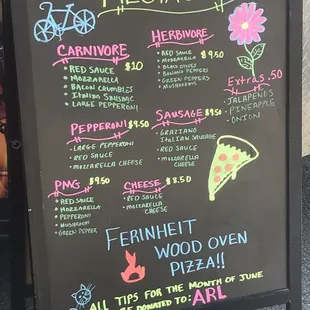 CARNIVORE $10
• RED SAUCE
• MOZZARELLA
• BACON CRUMBLES
• ITALIAN SAUSAGE
• LARGE PEPPERONI
HERBIVORE $9.50
• RED SAUCE
• MOZZARELLA
• BLACK OLIVES
• BANANA PEPPERS
• GREEN PEPPERS
• MUSHROOM
EXTRAS .50
- JALAPEÑOS
- PINEAPPLE
- ONION
PEPPERONI $9.50
- LARGE PEPPERONI
- RED SAUCE
- MOZARELLA CHEESE
SAUSAGE $9.50
- GRAZIANO
ITALIAN SAUSAGE
- RED SAUCE
- MOZARELLA
CHEESE
PMG $9.50
• RED SAUCE
• MOZZARELLA
• PEPPERONI
• MUSHROOM
• GREEN PEPPER
CHEESE $8.50
- RED SAUCE
- MOZARELLA
CHEESE
FERINHEIT
WOOD OVEN
PIZZA!!
ALL TIPS FOR THE MONTH OF JUNE
BE DONATED TO: ARL